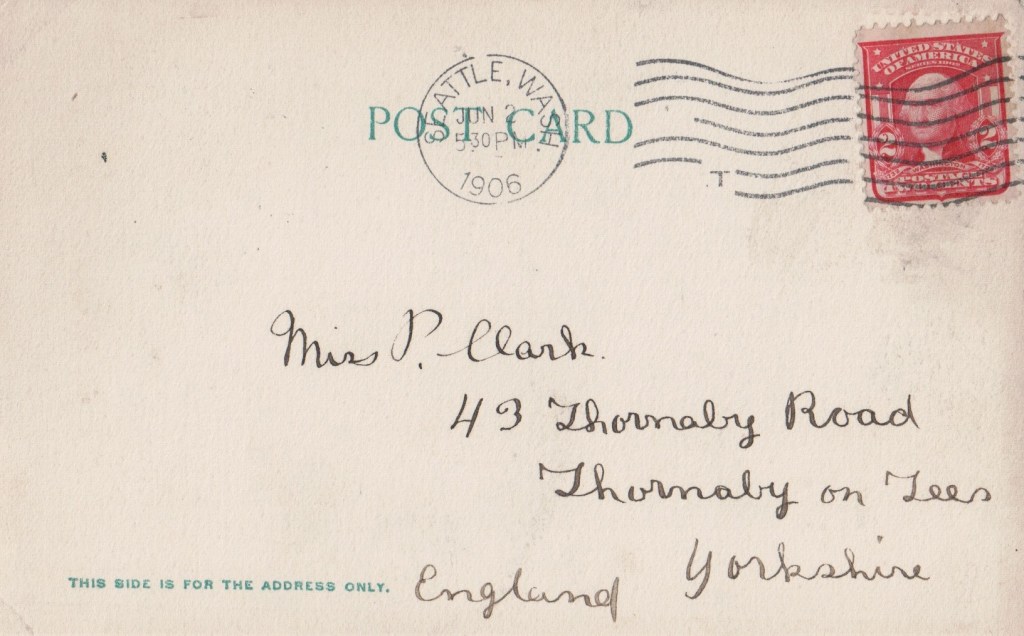 POST CARD
SEATTLE, WASH.
JUN 2
530 PM
1906
T
UNITED STATES
OF AMERICA
SERIES 1902
2 2
POSTAGE
TWO CENTS
Miss P. Clark.
43 Thornaby Road
Thornaby on Tees
Yorkshire
England
THIS SIDE IS FOR THE ADDRESS ONLY.